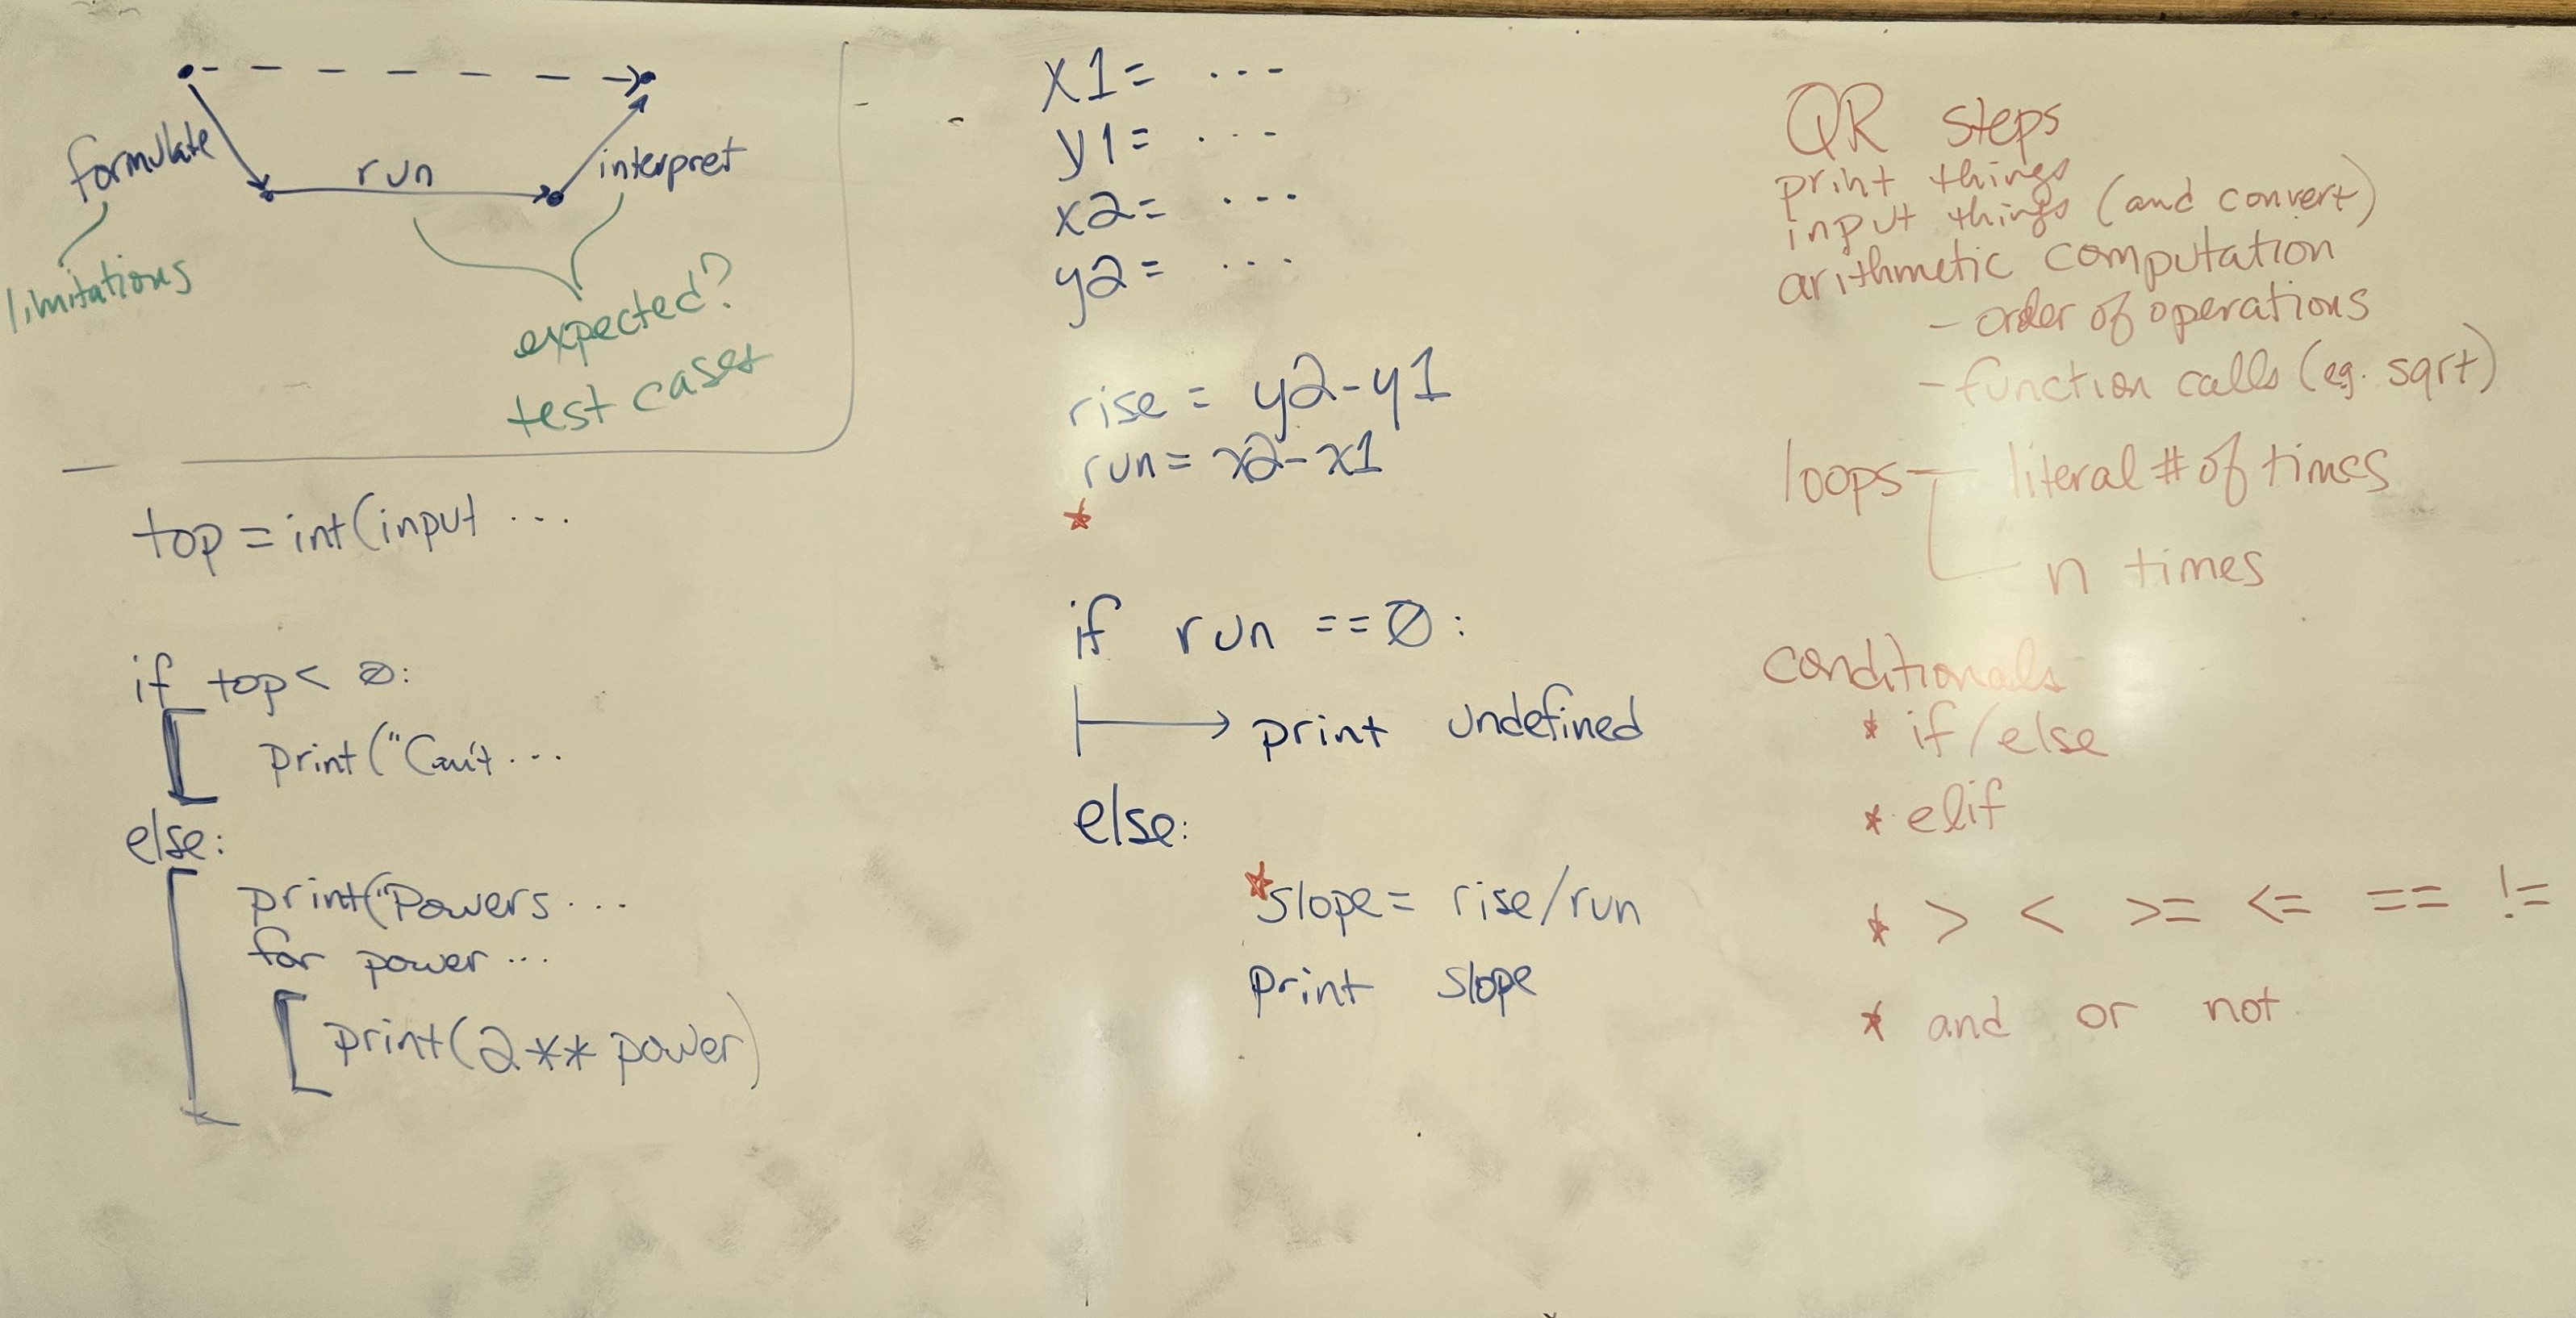 formulate
run
interpret
limitations
expected?
test cases
top = int(input ...
if top < 0:
print("Can't ...
else:
print("Powers ...
for power ...
print(2**power)
x1 = ...
y1 = ...
x2 = ...
y2 = ...
rise = y2-y1
run = x2-x1
*
if run == 0:
print undefined
else:
*slope = rise/run
print slope
QR steps
print things
input things (and convert)
arithmetic computation
- order of operations
- function calls (eg. sqrt)
loops literal # of times
n times
conditionals
* if/else
* elif
* > < >= <= == !=
* and or not